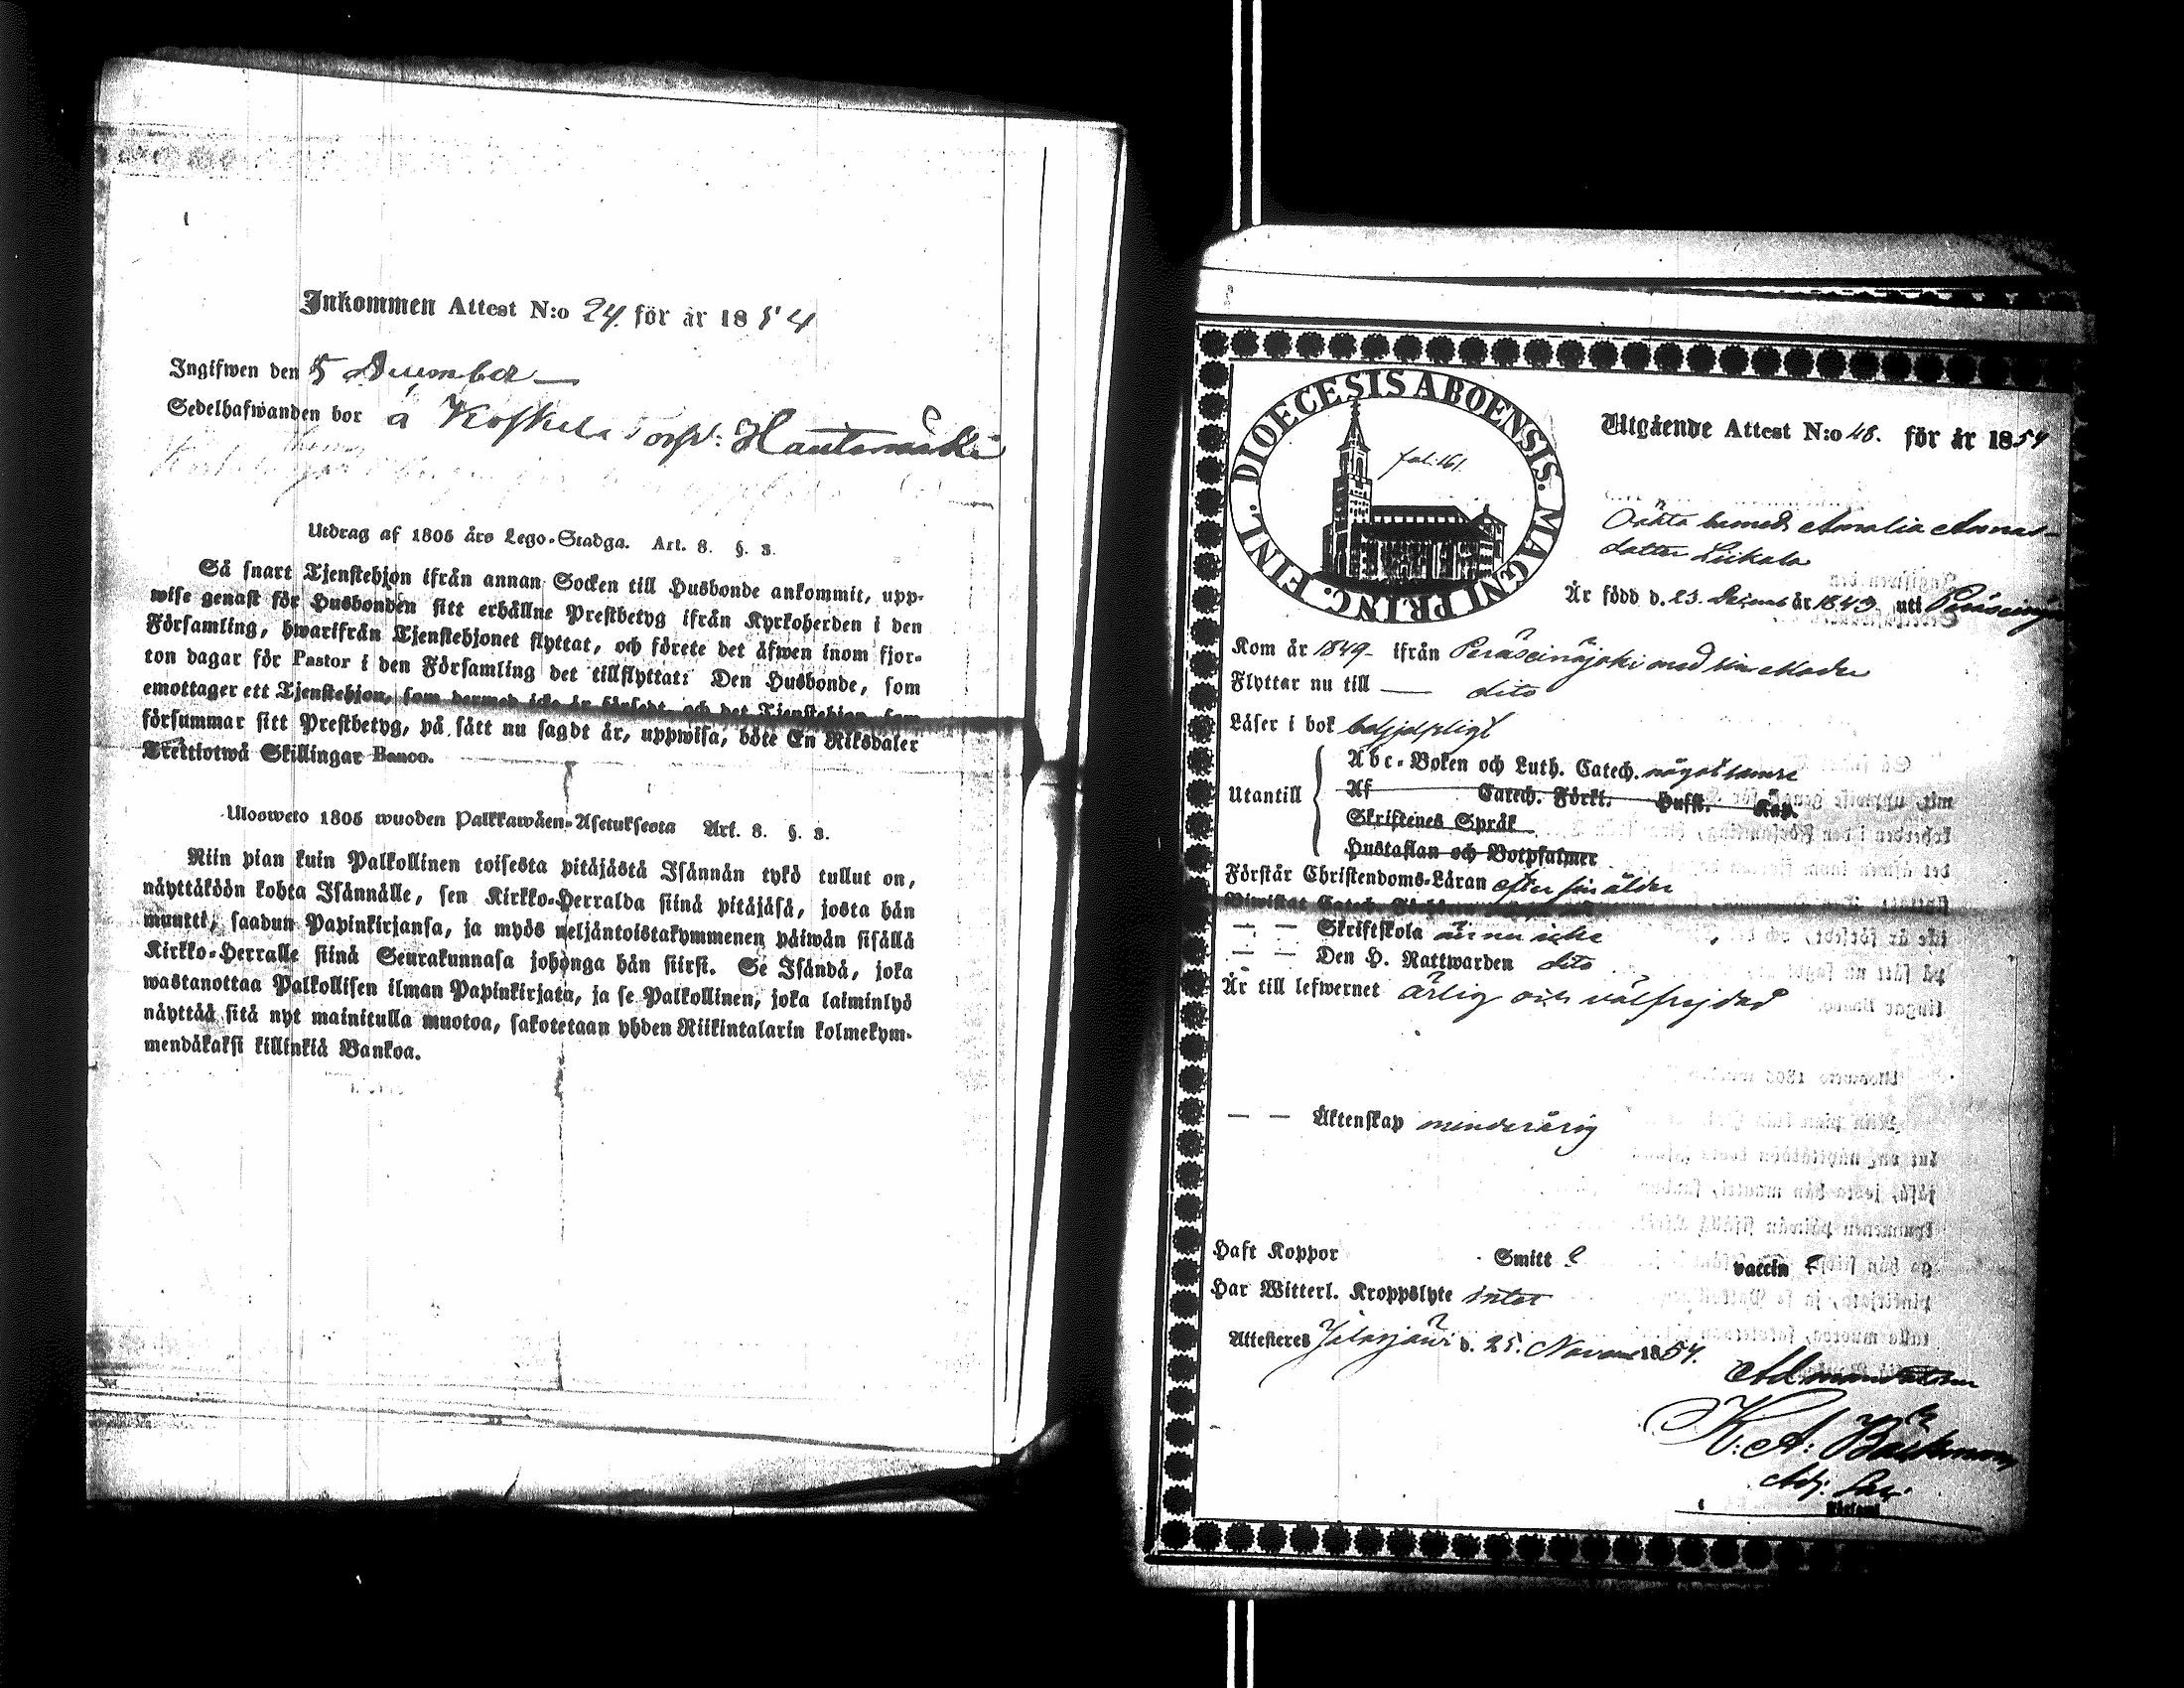 Inkommen Attest N:o 24. för år 1854
Ingifwen den 5 December
Sedelhafwanden bor å Koskela Torp: Hautamäki
Utdrag af 1805 års Lego-Stadga. Art. 8. §. 3.
Så snart Tjenstehjon ifrån annan Socken till Husbonde ankommit, upp-
wise genast för Husbonden sitt erhållne Prestbetyg ifrån Kyrkoherden i den
Församling, hwarifrån Tjenstehjonet flyttat, och förete det äfwen inom fjor-
ton dagar för Pastor i den Församling det tillflyttat: Den Husbonde, som
emottager ett Tjenstehjon, som dermed icke är försedt, och det Tjenstehjon, som
försummar sitt Prestbetyg, på sätt nu sagdt är, uppwisa, böte En Riksdaler
Trettiotwå Skillingar Banco.
Ulosweto 1805 wuoden Palkkawäen-Asetuksesta Art. 8. §. 3.
Niin pian kuin Palkollinen toisesta pitäjästä Isännän tykö tullut on,
näyttäköön kohta Isännälle, sen Kirkko-Herralda siinä pitäjäsä, josta hän
muutti, saadun Papinkirjansa, ja myös neljäntoistakymmenen päiwän sisällä
Kirkko-Herralle siinä Seurakunnasa johonga hän siirsi. Se Isändä, joka
wastanottaa Palkollisen ilman Papinkirjata, ja se Palkollinen, joka laiminlyö
näyttää sitä nyt mainitulla muotoa, sakotetaan yhden Riikintalarin kolmekym-
mendäkaksi killinkiä Bankoa.
DIOECESIS ABOENSIS. MAGNI PRINC. FINL.
fol. 161.
Utgående Attest N:o 48. för år 1854
Oäkta barnet Amalia Annas-
dotter Liikala
År född d. 23. Decemb år 1843 uti Peräseinäjo
Kom år 1849 ifrån Peräseinäjoki med sin Moder
Flyttar nu till — dito
Läser i bok behjelpligt
Utantill
Abc-Boken och Luth. Catech. någotsamre
Af Catech. Förkl. Hufst. Kap.
Skriftenes Språk
Hustaflan och Botpsalmer
Förstår Christendoms-Läran efter sin ålder
— — Skriftskola ännu icke
— — Den H. Nattwarden dito
Är till lefwernet ärlig och välfrejdad
— — Äktenskap minderårig
Haft Koppor Smitt ? vaccin ?
Har Witterl. Kroppslyte intet
Attesteres Jalasjärvi d. 25. Novem 1854.
K: A: Bäckman
Adj. Sacr.